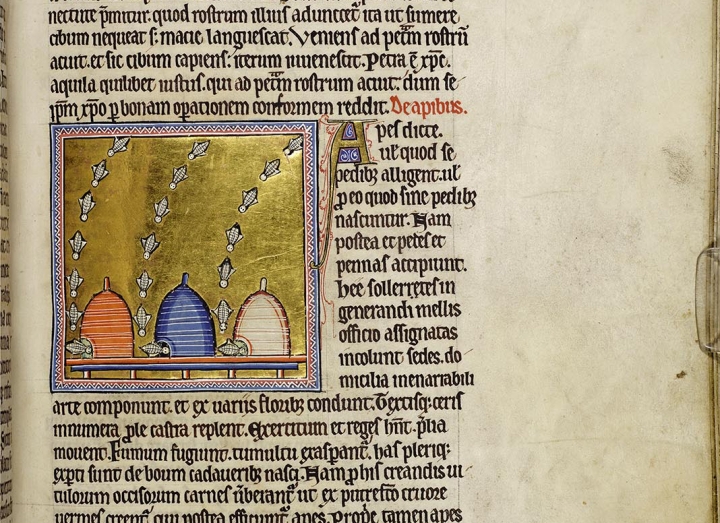 nectute p̄mitur. quod rostrum illius aduncet᷑ ita ut sumere
cibum nequeat s; macie languescat. Veniens ad pet᷑m rostrū
acuit. et sic cibum capiens: iterum iuuenescit. Petra ē xp̄c.
aquila quilibet iustus. qui ad pet᷑m rostrum acuit. dum se
ip̄m xp̄o ꝑ bonam oꝑationem conformem reddit. De apibus.
Apes dicte.
ul̄ quod se
pedibꝫ alligent. ul̄
ꝓ eo quod sine pedibꝫ
nascuntur. Nam
postea et pedes et
pennas accipiunt.
hee sollertes in
generandi mellis
officio assignatas
incolunt sedes. do
micilia inenarrabili
arte componunt. et ex uariis floribꝫ condunt. Textisqꝫ ceris
innumera ꝓle castra replent. Exercitum et reges hn̄t. p̄lia
mouent. Fumum fugiunt. tumultu exasꝑant᷑. has pleriqꝫ
exp̄ti sunt de boum cadaueribꝫ nasci. Nam ꝓ his creandis ui
tulorum occisorum carnes ūberant᷑ ut ex putrefc̄o cruore
uermes creent᷑. qui postea efficiunt᷑ apes. Prop̄e tamen apes